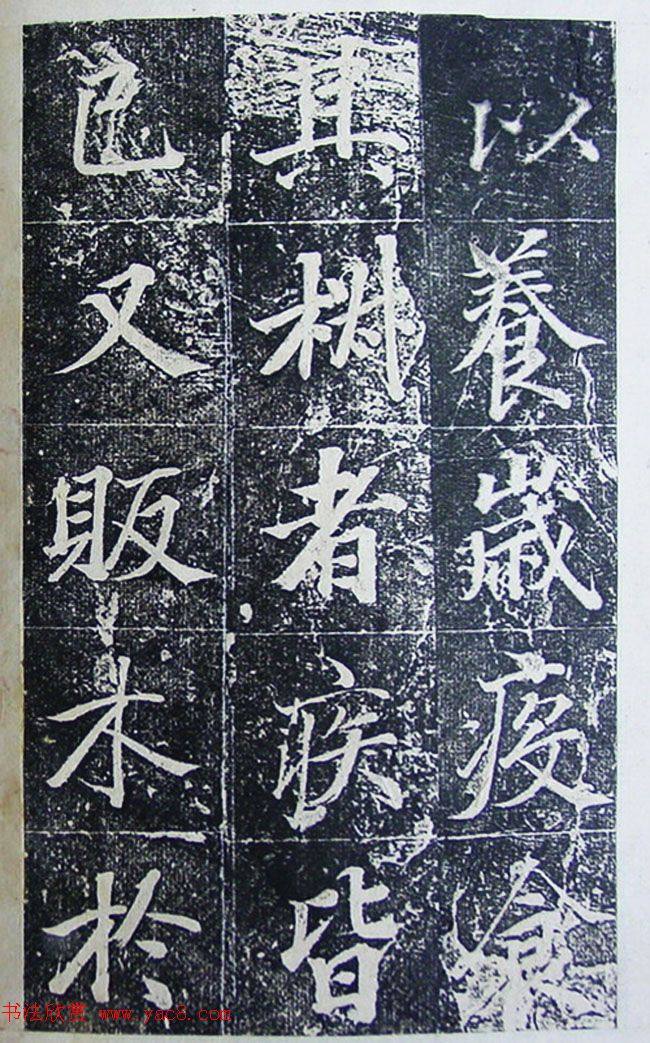 以養歲疫食
其者疾皆
已又販木於
书法欣赏 www.yac8.com